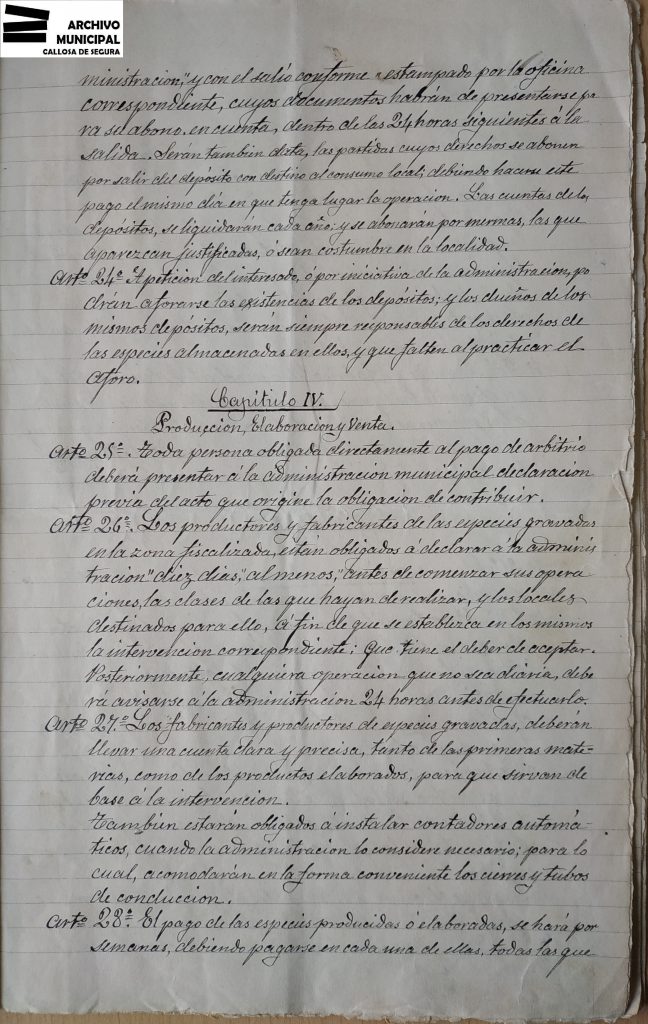 ARCHIVO
MUNICIPAL
CALLOSA DE SEGURA
ministracion," y con el salió conforme "estampado por la oficina
correspondiente, cuyos documentos habrán de presentarse pa-
ra su abono en cuenta, dentro de las 24 horas siguientes á la
salida. Serán tambien data, las partidas cuyos derechos se abonen
por salir del depósito con destino al consumo local; debiendo hacerse este
pago el mismo dia en que tenga lugar la operacion. Las cuentas de los
depósitos, se liquidarán cada año; y se abonarán por mermas, las que
aparezcan justificadas, ó sean costumbre en la localidad.
Artº 24º. A peticion del interesado, ó por iniciativa de la administracion, po
drán aforarse las existencias de los depósitos; y los dueños de los
mismos depósitos, serán siempre responsables de los derechos de
las especies almacenadas en ellos, y que falten al practicar el
aforo.
Capitulo IV.
Produccion, Elaboracion y Venta.
Artº 25º. Toda persona obligada directamente al pago de arbitrio
deberá presentar á la administracion municipal declaracion
previa del acto que origine la obligacion de contribuir.
Artº 26º. Los productores y fabricantes de las especies gravadas
en la zona fiscalizada, están obligados á declarar á la adminis
tracion "diez dias," al menos, antes de comenzar sus opera
ciones, las clases de las que hayan de realizar, y los locales
destinados para ello, á fin de que se establezca en los mismos
la intervencion correspondiente; que tiene el deber de aceptar.
Posteriormente, cualquiera operacion que no sea diaria, debe
rá avisarse á la administracion 24 horas antes de efectuarlo.
Artº 27º. Los fabricantes y productores de especies gravadas, deberán
llevar una cuenta clara y precisa, tanto de las primeras mate-
rias, como de los productos elaborados, para que sirvan de
base á la intervencion.
Tambien estarán obligados á instalar contadores automá-
ticos, cuando la administracion lo considere necesario; para lo
cual, acomodarán en la forma conveniente los cierres y tubos
de conduccion.
Artº 28º. El pago de las especies producidas ó elaboradas, se hará por
semanas, debiendo pagarse en cada una de ellas, todas las que